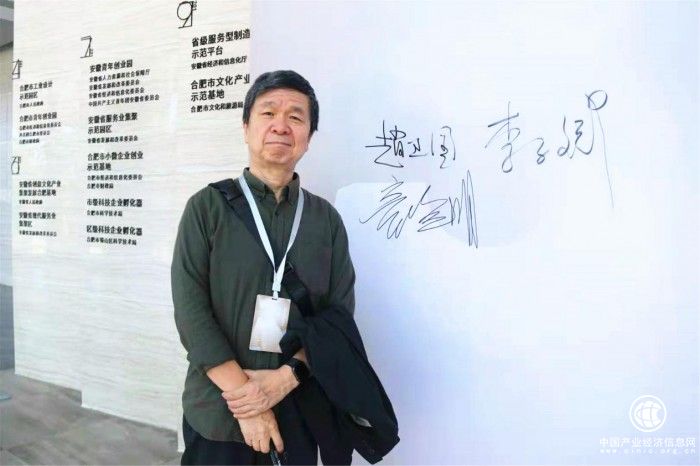 9
省级服务型制造
示范平台
安徽省经济和信息化厅
合肥市文化产业
示范基地
合肥市文化和旅游局
7
安徽青年创业园
安徽省人力资源和社会保障厅
安徽省发展和改革委员会
安徽省经济和信息化委员会
中国共产主义青年团安徽省委员会
安徽省服务业集聚
示范园区
安徽省发展和改革委员会
合肥市小微企业创业
示范基地
合肥市经济和信息化委员会
合肥市财政局
市级科技企业孵化器
合肥市科学技术局
区级科技企业孵化器
合肥市蜀山区科学技术局
合肥市工业设计
示范园区
合肥市青年创业园
安徽省创意文化产业
集聚发展合肥基地
安徽省现代服务业
集聚区
安徽省发展和改革委员会
趙卫国
李子
中国产业经济信息网
www.cinic.org.cn